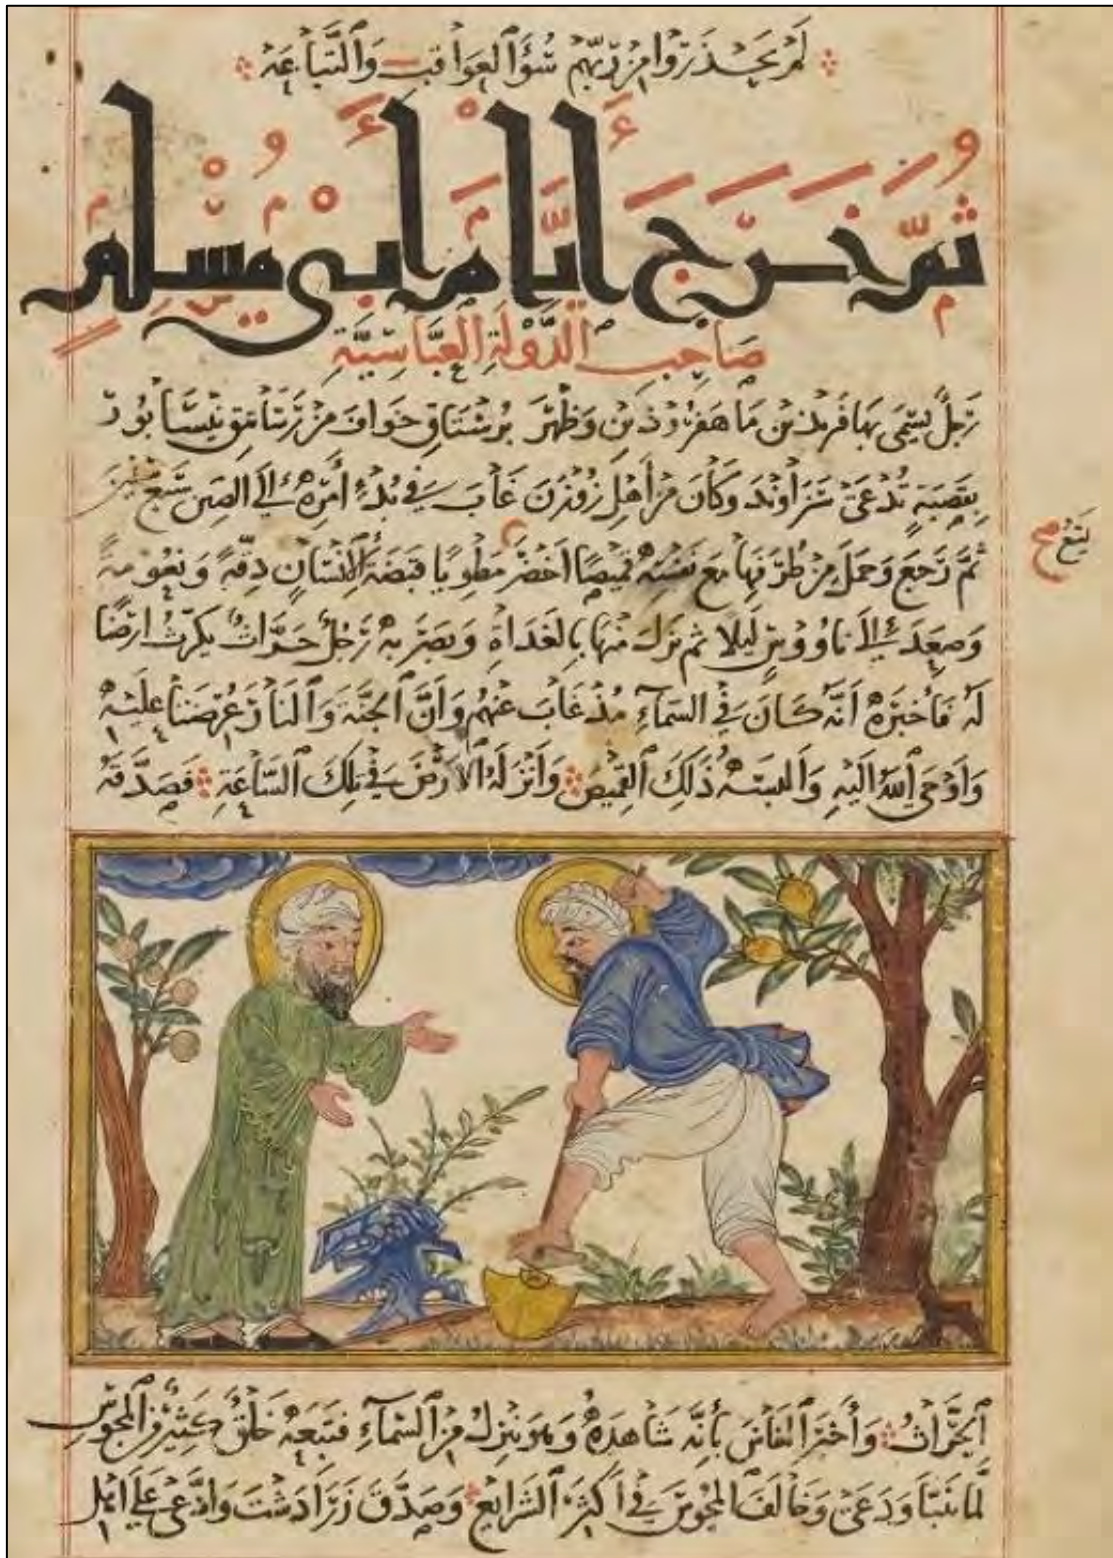 لم يحذروا من ربهم سوء العواقب والتباعة
ثم خرج أيام أبي مسلم
صاحب الدولة العباسية
رجل يسمى بهافريذ بن ماهفروذين وظهر برستاق خواف من رساتيق نيسابور
بقصبة تدعى سراوند وكان من أهل زوزن غاب في بدء أمره إلى الصين سبع سنين
ثم رجع وحمل من طرفها مع نفسه قميصا اخضر مطويا قبضة الانسان دقة ونعومة
وصعد إلى ناووس ليلا ثم نزل منها بالغداة وبصر به رجل حراث يكرث ارضا
له فاخبره أنه كان في السماء مذ غاب عنهم وأن الجنة والنار عرضتا عليه
واوحى الله اليه والبسه ذلك القميص وانزله الارض في تلك الساعة فصدقه
الحراث وأخبر الناس بأنه شاهده وهو ينزل من السماء فتبعه خلق كثير من المجوس
لما تنبا ودعى وخالف المجوس في اكثر الشرايع وصدق زرادشت وادعى على اهل